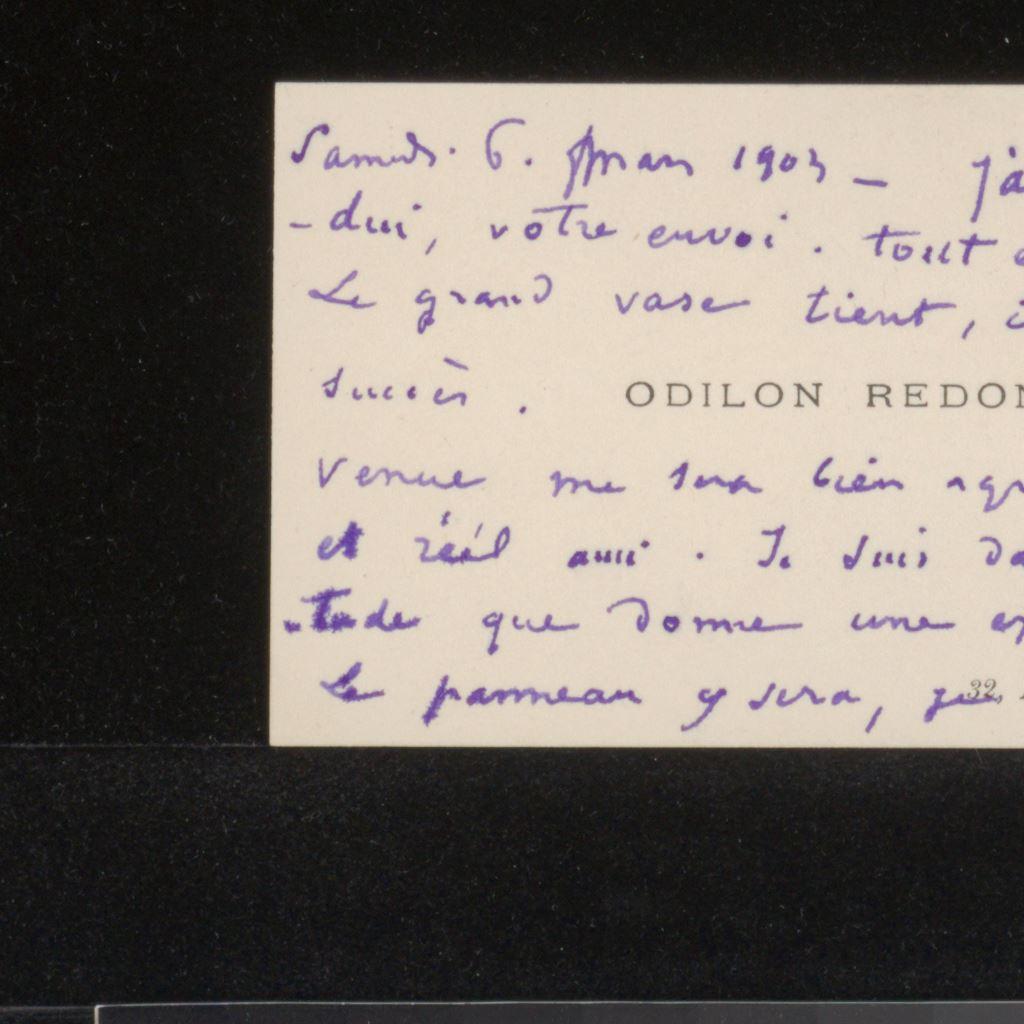 Samedi. 6. mars 1903 — j'a
-dui, votre envoi. tout
Le grand vase tient,
succès. ODILON REDON
Venue me sera bien agr
et réél ami. Je suis da
-tude que donne une ex
Le panneau y sera, je
32,